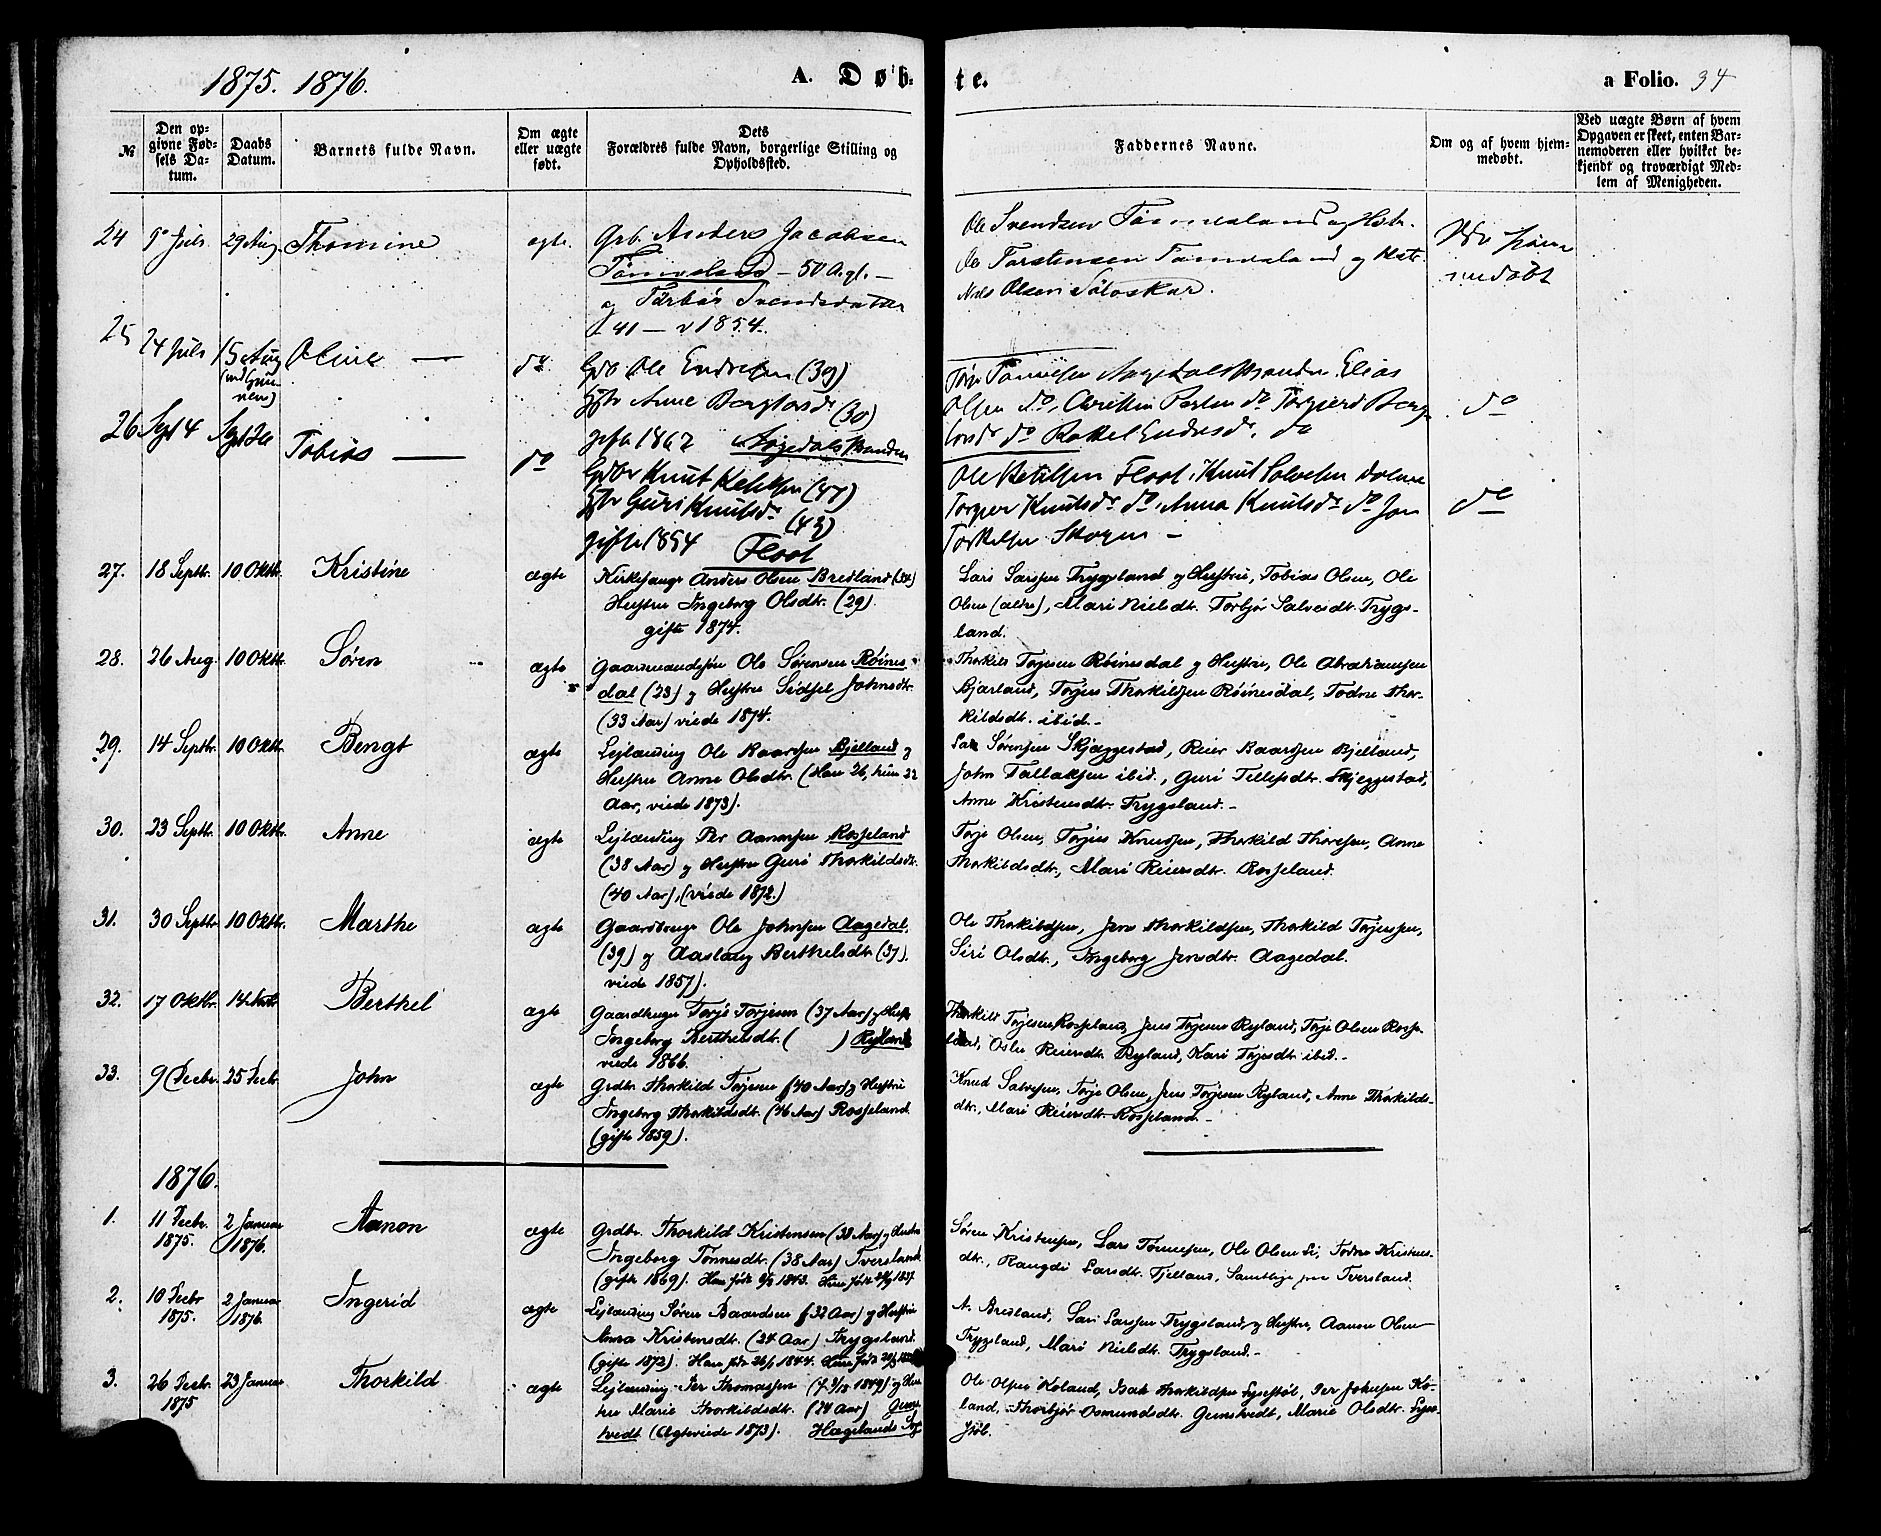 1875. 1876.
A. Døb-
te.
a Folio. 34
№
Den op-
givne Fød-
sels Da-
tum.
Daabs
Datum.
Barnets fulde Navn.
Om ægte
eller uægte
født.
Dets
Forældres fulde Navn, borgerlige Stilling og
Opholdssted.
Faddernes Navne.
Om og af hvem hjem-
medøbt.
Ved uægte Børn af hvem
Opgaven er skeet, enten Bar-
nemoderen eller hvilket be-
kjendt og troværdigt Med-
lem af Menigheden.
24 9 Juli 29 Aug Thomine ægte. Grb. Anders Jacobsen
– 50 Agl. –
og Torbør Svendsdatter
41 – v 1854.
Ole Svendsen
Ole Torstensen
Niels Olsen
25 24 Juli 15 Aug Oline — do Gdb Ole Endresen (39)
Anne Bergtorsdr (30)
gift 1862
Elias
Olsen do,
do Rakkel Endresdr. do
do
26 Sept 4 Sept 26 Tobias — do Gdbr Knut Ketilsen (47)
Guri Knutsdr (43)
gifte 1854 Floot
Ole Ketilsen Floot, Knut Salvesen
Knutsdr do, Anna Knutsdr do Jon
Torkelsen Skogen –
do
27. 18 Septr. 10 Oktbr. Kristine ægte Kirkesangr Anders Olsen Bredland (34)
Hustru Ingeborg Olsdtr. (29)
gifte 1874.
Lars Larssen Trygsland og Hustru, Tobias Olsen, Ole
Olsen (ældre), Mari Nielsdtr. Torbjør Salvesdtr. Trygs-
land.
28. 26 Aug. 10 Oktbr. Søren ægte Gaardmandssøn Ole Sørensen Røines-
dal (23) og Hustru Sidsel Johnsdtr.
(33 Aar) viede 1874.
Thorkild Torjesen Røinesdal og Hustru, Ole Abrahamsen
Bjærland, Torjus Thorkildsen Røinesdal, Todne Thor-
kildsdt. ibid. –
29. 14 Septr. 10 Oktbr. Bengt ægte Lejlænding Ole Baarsen Bjelland og
Hustru Anne Olsdtr. (Han 26, hun 22
Aar, viede 1873).
Lars Sørensen Skjæggestad, Reier Baardsen Bjelland,
John Tallaksen ibid., Guri Tellefsdtr. Skjeggestad,
Anne Kristensdtr. Trygsland. –
30. 23 Septr. 10 Oktbr. Anne ægte Lejlænding Per Aanensen Rosseland
(38 Aar) og Hustru Guri Thorkildsdt.
(40 Aar), (viede 1872)
Torje Olsen, Torjus Knudsen, Thorkild Thoresen, Anne
Thorkildsdtr., Mari Reiersdtr. Rosseland.
31. 30 Septbr 10 Oktbr. Marthe ægte Gaardbruger Ole Johnsen Aagedal,
(39) og Aaslaug Berthelsdtr. (37).
viede 1857).
Ole Thorkildsen, Jens Thorkildsen, Thorkild Torjussen,
Siri Olsdt., Ingeborg Jensdtr. Aagedal.
32. 17 Oktbr. 14 Novbr Berthel ægte Gaardbruger Torje Torjesen (37 Aar) og Hustr
Ingeborg Berthelsdtr. ( ) Ryland
viede 1866.
Thorkild Torjesen Rosseland, Jens Torjesen Ryland, Torje Olsen Rosse-
land, Oslu Reiersdt. Ryland, Kari Torjesdt. ibid. –
33. 9 Decbr. 25 Decbr John ægte Grdbr. Thorkild Torjesen (40 Aar) og Hustru
Ingeborg Thorkildsdt. (46 Aar) Rosseland
(gifte 1859).
Knud Salvesen, Torje Olsen, Jens Torjesen Ryland, Anne Thorkilds-
dt., Mari Reiersdt. Rosseland. –
1876.
1. 11 Decbr. 1875. 2 Januar 1876. Aanon ægte Grdbr. Thorkild Kristensen (32 Aar) og Hustru
Ingeborg Tønnesdt. (38 Aar) Tversland
(gifte 1869). Han født 1843. Hun født 1837.
Søren Kristensen, Lars Tønnesen, Ole Olsen Li, Todne Kristens-
dt., Rangdi Larsdt. Tjelland, Samtlige paa Tversland.
2. 10 Decbr 1875. 2 Januar 1876. Ingerid ægte Lejlænding Søren Baardsen (32 Aar) og Hustru
Anna Kristensdt. (34 Aar) Trygsland.
(gifte 1873). Han født 26/1 1844. Hun født
A. Bredland, Lars Larssen Trygsland og Hustru, Aanen Olsen
Trygsland, Mari Nielsdt. Trygsland. –
3. 26 Decbr. 1875 23 Januar Thorkild ægte Lejlænding Per Thomassen 1849) og Hus-
tru Marie Thorkildsdt. (24 Aar) Gum-
tvedt (Ægteviede 1873). Hægelands Sogn
Ole Olsen Koland, Isak Thorkildsen Lysestøl, Per Johnsen Ko-
land, Thorbjør Osmundsdt. Gumtvedt, Marie Olsdt. Lyse-
støl.